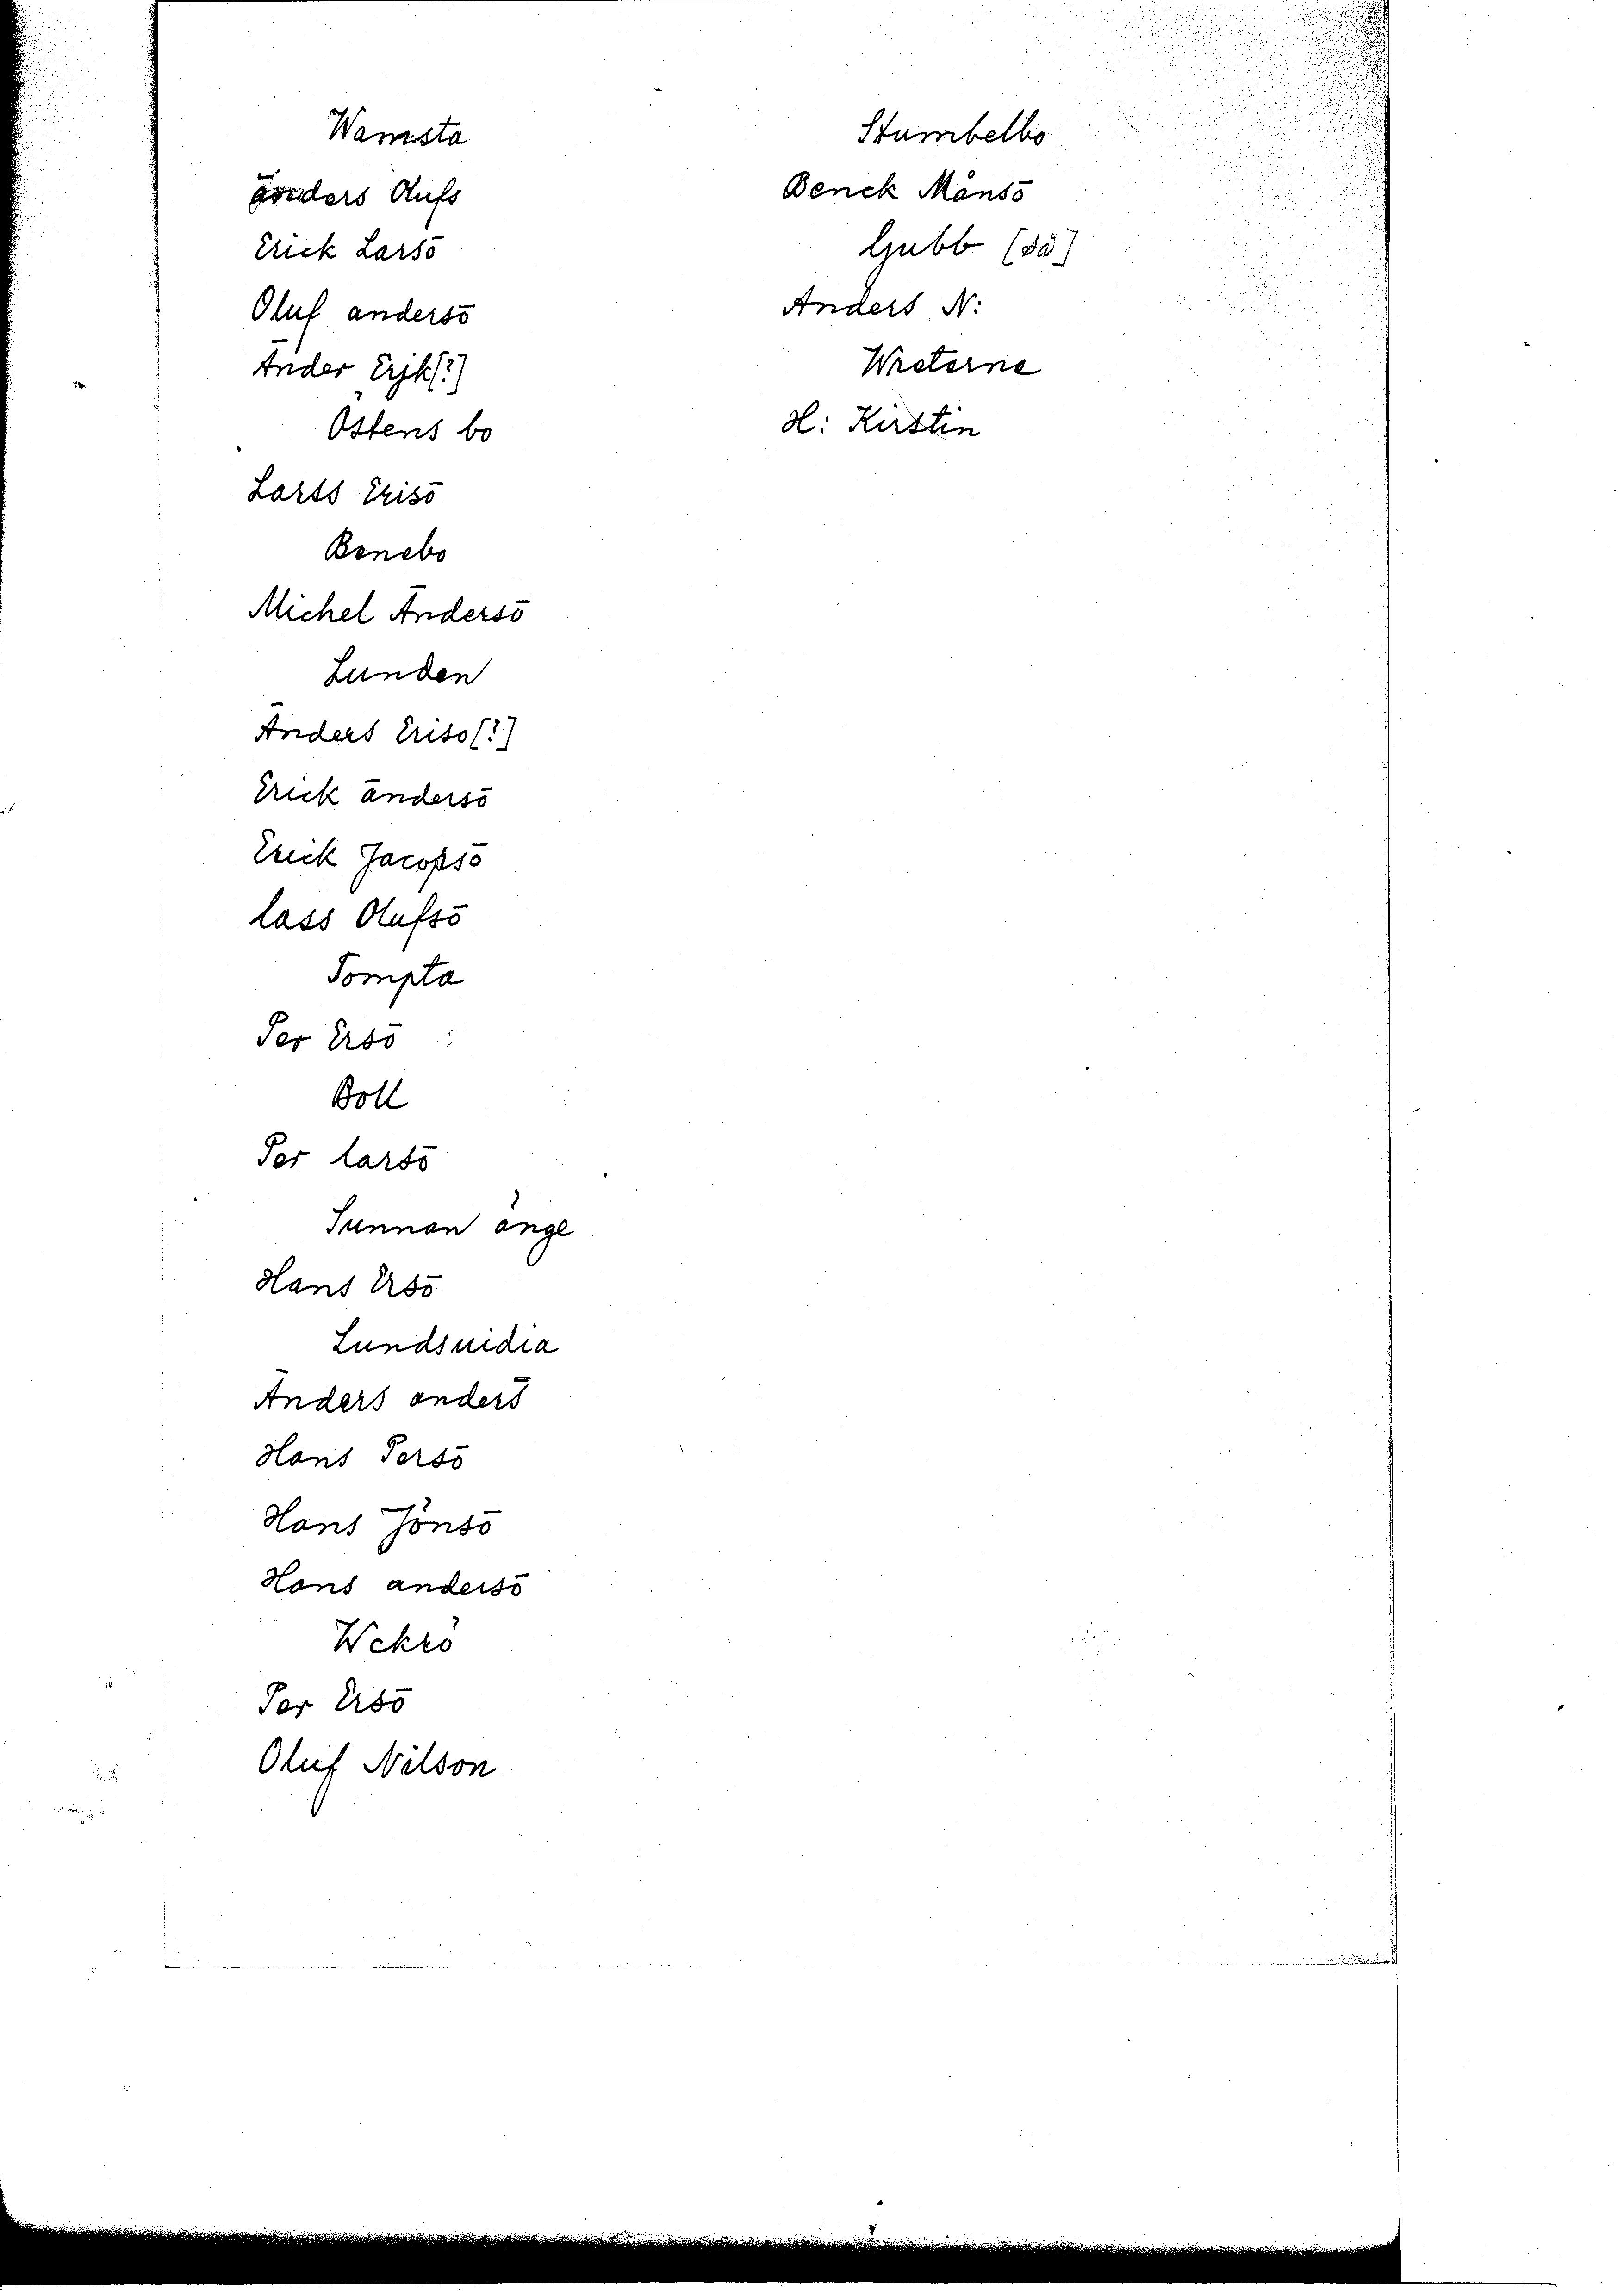 Wamsta
anders Olufs
Erick Larsō
Oluf andersō
Ānder Erjk[?]
Östens bo
Larss Erisō
Benebo
Michel Āndersō
Lunden
Ānders Eriso[?]
Erick āndersō
Erick Jacopsō
lass Olufsō
Tompta
Per Ersō
Boll
Per larsō
Sunnan änge
Hans Ersō
Lundsuidia
Ānders anders̄
Hans Persō
Hans Jönsō
Hans andersō
Wekrö
Per Ersō
Oluf Nilson
Stumbelbo
Benck Månsō
Gubb (så]
Anders N:
Wreterne
H: Kirstin